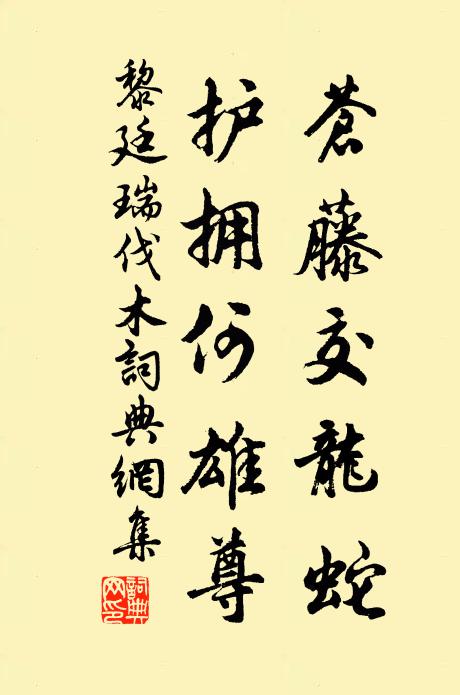 蒼藤交龍蛇
护拥何雄尊
黎廷瑞伐木詞典網集
詞典网印